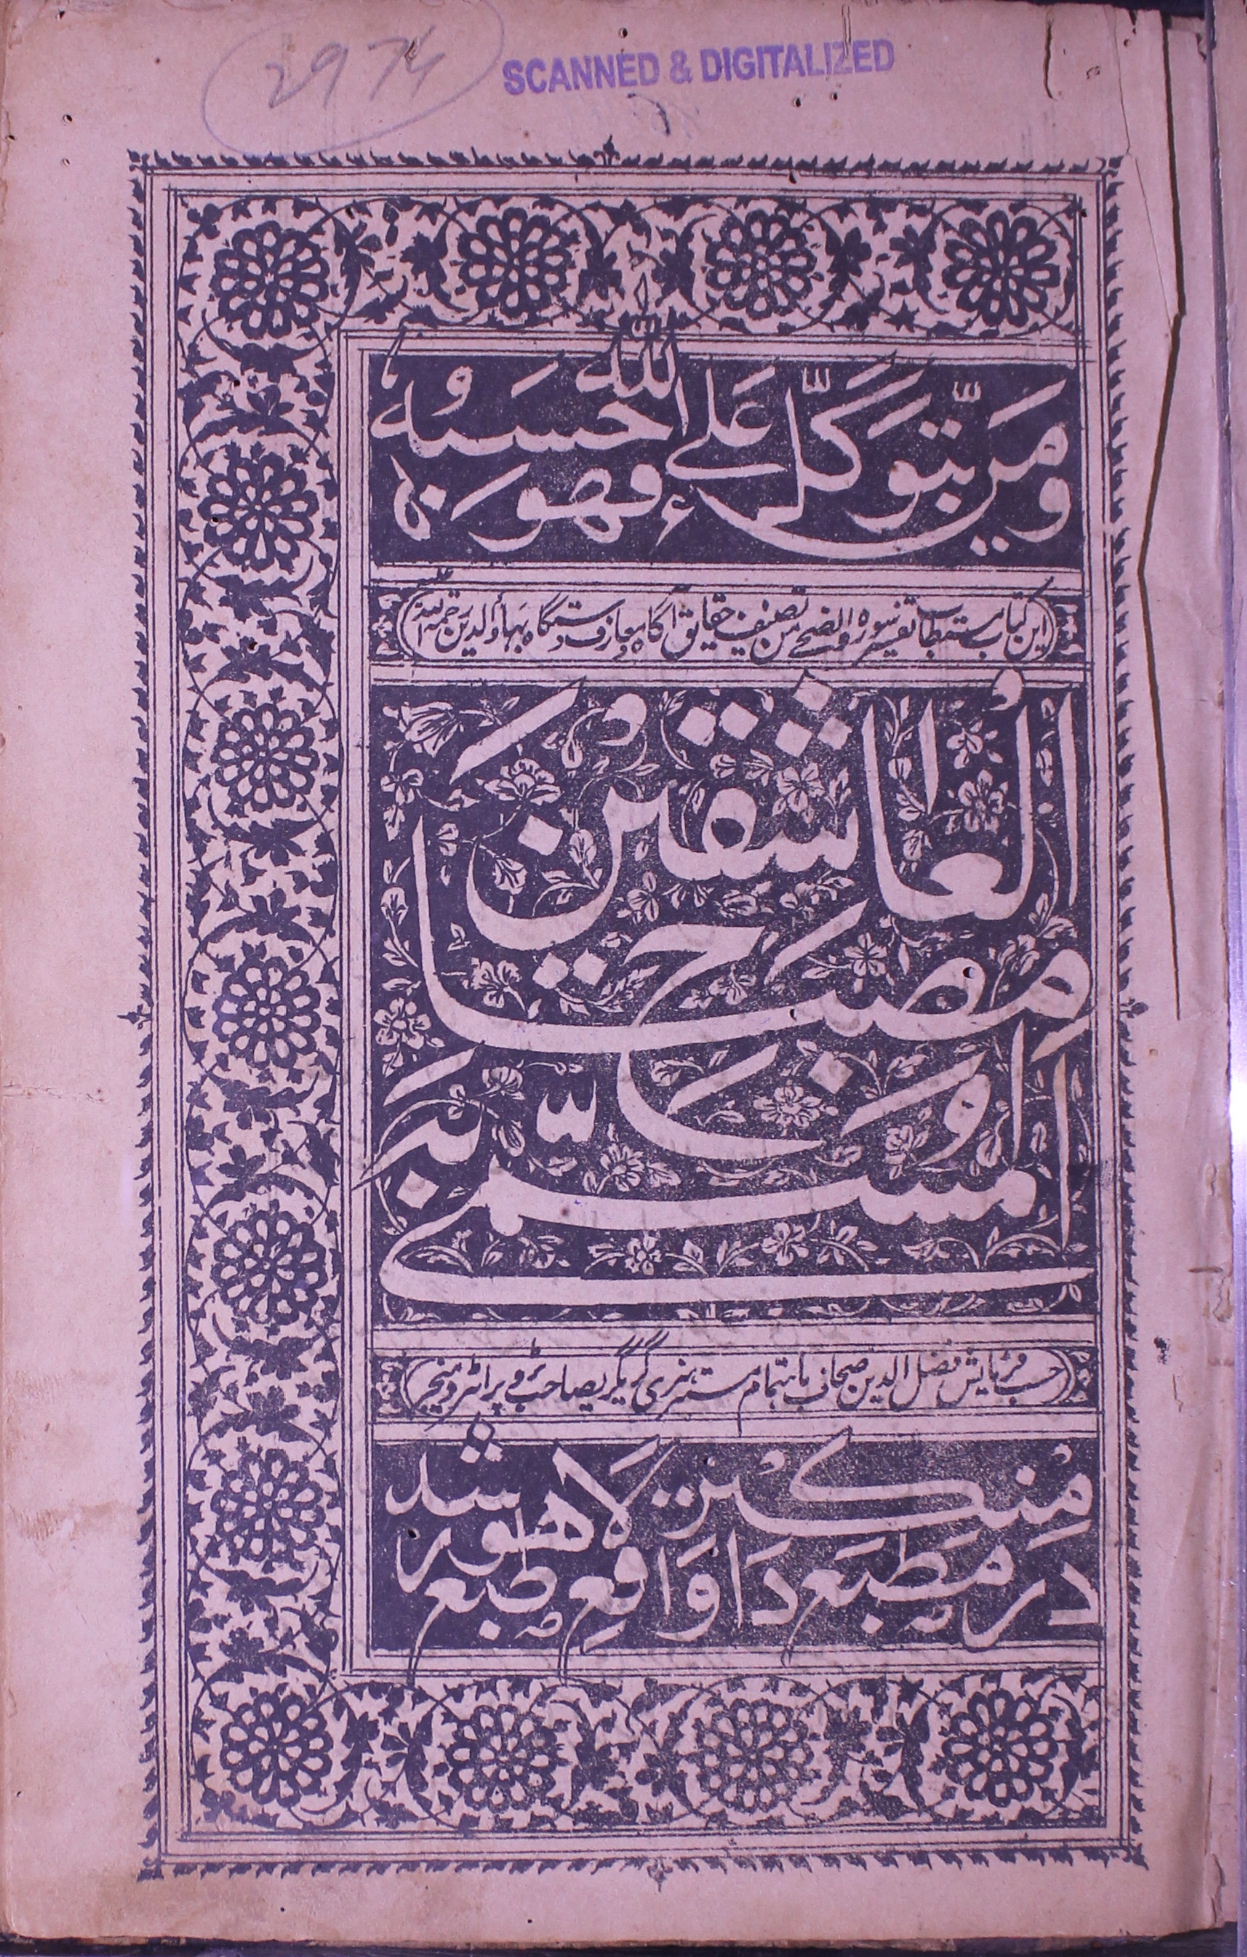 2974
SCANNED & DIGITALIZED
وَمَنْ يَّتَوَكَّلْ عَلَى اللّٰهِ فَهُوَ حَسْبُهٗ
این کتاب مستطاب تفسیر سوره والضحے من تصنیف حقایق آگاه معارف دستگاه بهاؤالدین رحمة الله علیه
المسمّٰی به
مصباح
العاشقین
حسب فرمایش فضل الدین صحاف باهتمام مستر هنری گریگری صاحب پروپرائٹر و منیجر
در مطبع
واقع لاهور طبع شد